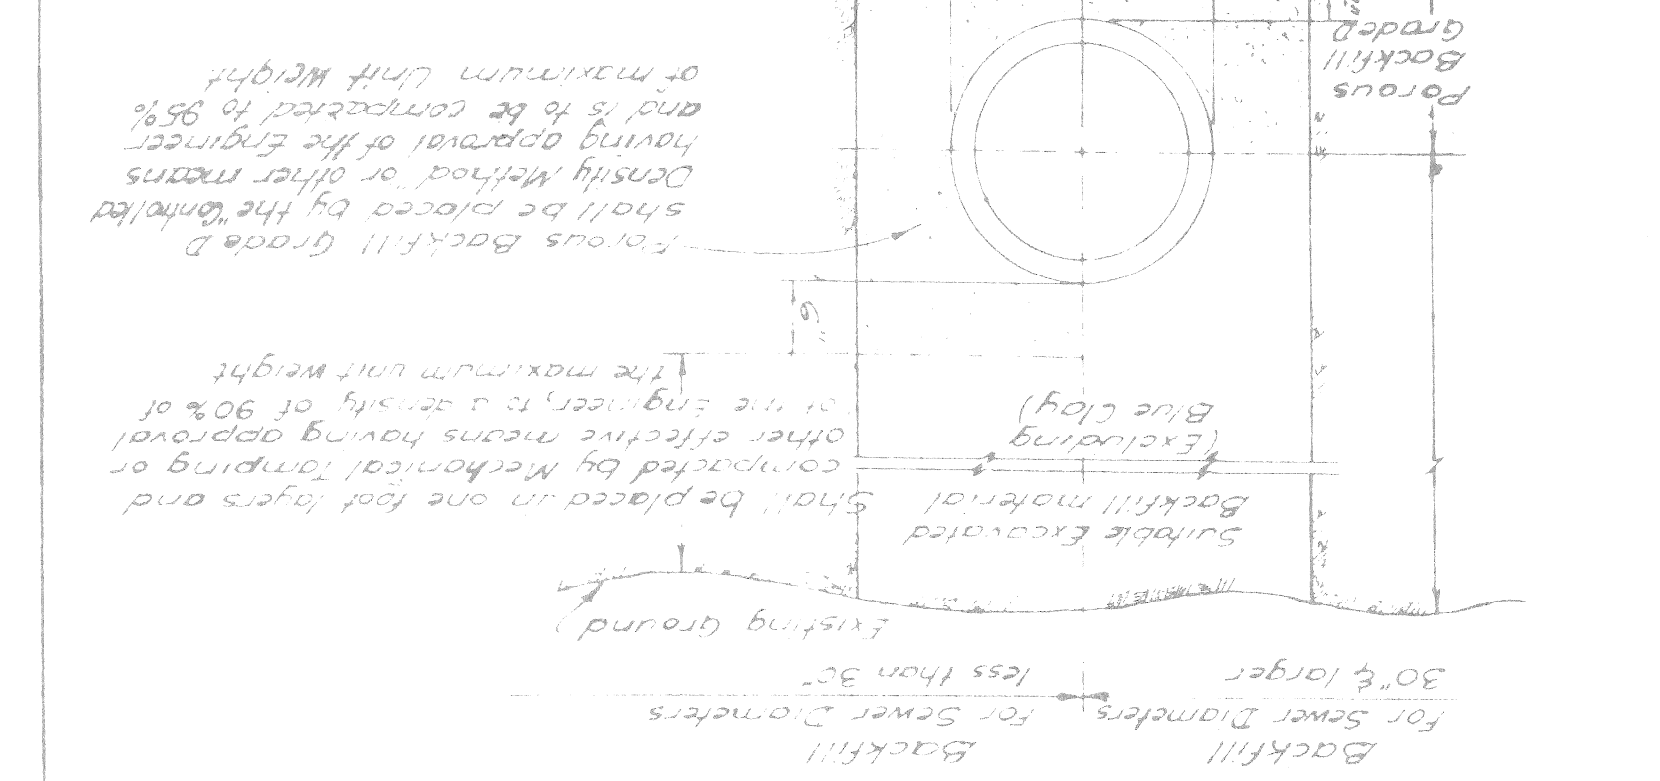 Backfill
For Sewer Diameters
30" & larger
Backfill
For Sewer Diameters
less than 30"
Existing Ground
Suitable Excavated
Backfill material
(Excluding
Blue Clay)
Shall be placed in one foot layers and
compacted by Mechanical Tamping or
other effective means having approval
of the Engineer, to a density of 90% of
the maximum unit weight
6"
Porous Backfill Grade D
shall be placed by the "Controlled
Density Method" or other means
having approval of the Engineer
and is to be compacted to 95%
of maximum Unit Weight
Porous
Backfill
Grade D